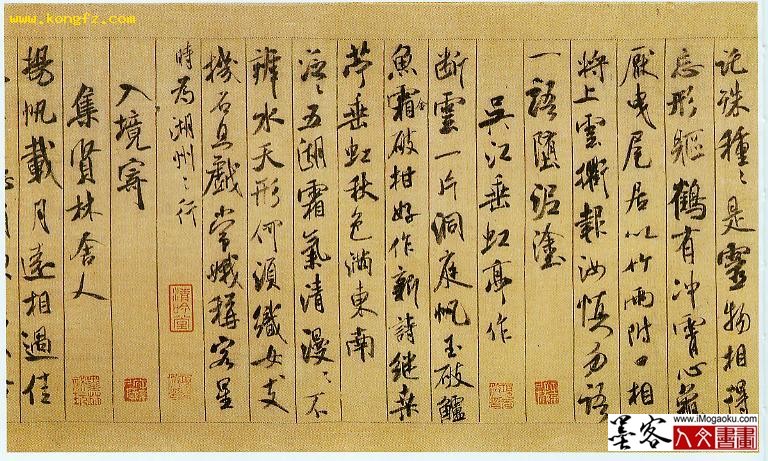 www.kongfz.com
託殊種〻是靈物相得
忘形軀鶴有沖霄心龜
厭曳尾居以竹兩附口相
將上雲衢報汝慎勿語
一語墮泥塗
吳江垂虹亭作
斷雲一片洞庭帆玉破鱸
魚霜金破柑好作新詩繼桑
苧垂虹秋色滿東南
泛〻五湖霜氣清漫〻不
辨水天形何須織女支
機石且戲常娥稱客星
時為湖州之行
清吟堂
入境寄
集賢林舍人
揚帆載月遠相過佳
墨客
www.iMogaoku.com
人文書畫